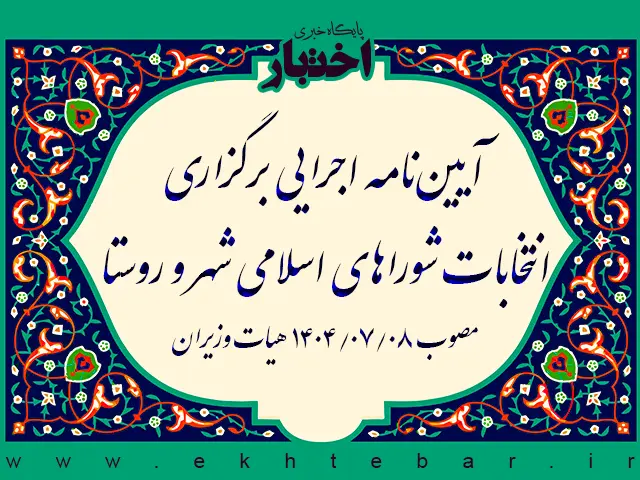 پایگاه خبری
اختبار
آیین‌نامه اجرایی برگزاری
انتخابات شوراهای اسلامی شهر و روستا
مصوب ۱۴۰۴/۰۷/۰۸ هیات وزیران
www.ekhtebar.ir